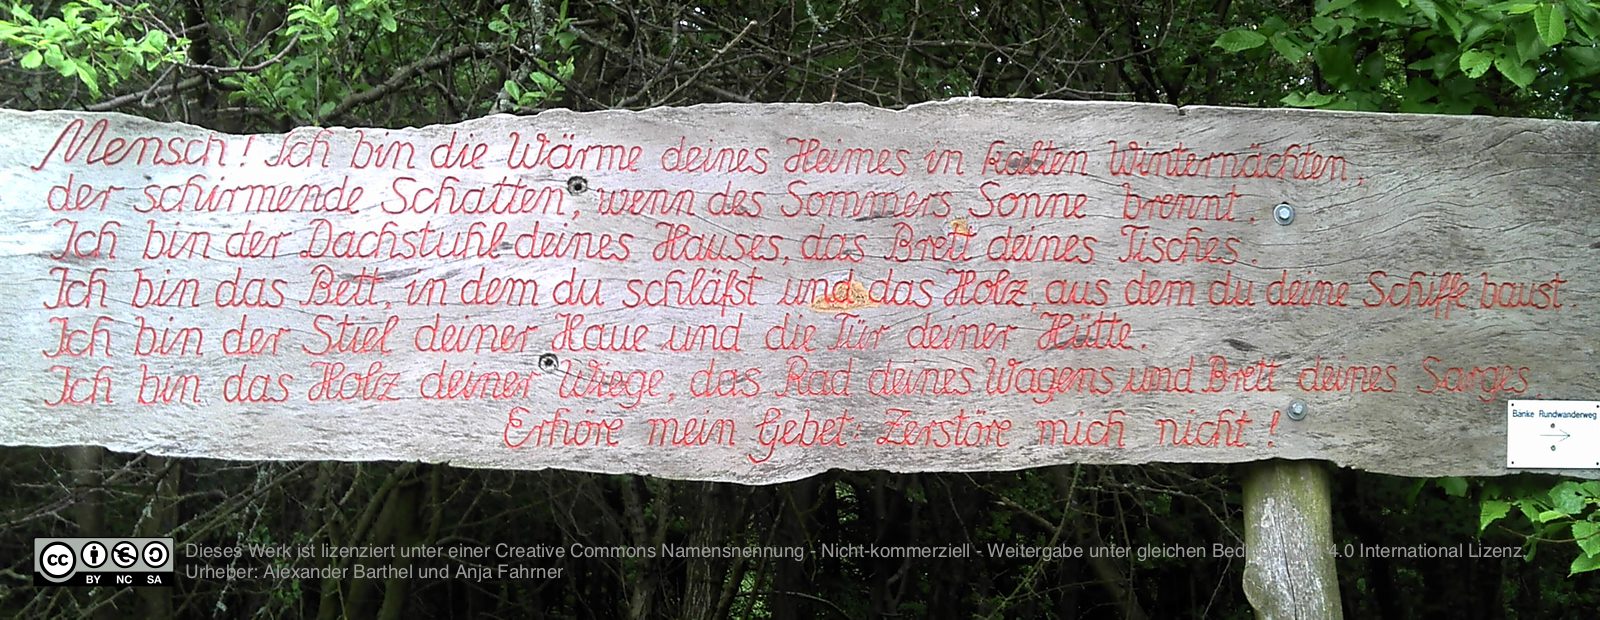 Mensch! Ich bin die Wärme deines Heimes in kalten Winternächten,
der schirmende Schatten, wenn des Sommers Sonne brennt.
Ich bin der Dachstuhl deines Hauses, das Brett deines Tisches.
Ich bin das Bett, in dem du schläfst und das Holz, aus dem du deine Schiffe baust.
Ich bin der Stiel deiner Haue und die Tür deiner Hütte.
Ich bin das Holz deiner Wiege, das Rad deines Wagens und Brett deines Sarges
Erhöre mein Gebet: Zerstöre mich nicht!
Bänke Rundwanderweg
cc BY NC SA
Dieses Werk ist lizenziert unter einer Creative Commons Namensnennung - Nicht-kommerziell - Weitergabe unter gleichen 4.0 International Lizenz,
Urheber: Alexander Barthel und Anja Fahrner